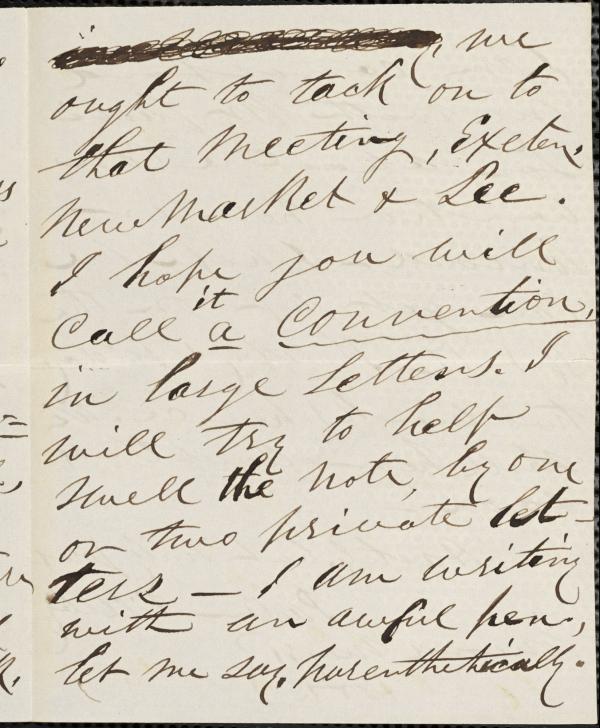 , we
ought to tack on to
that meeting, Exeter,
New Market & Lee.
I hope you will
call it a Convention,
in large letters. I
will try to help
swell the note, by one
or two private let-
ters — I am writing
with an awful pen,
let me say, parenthetically.